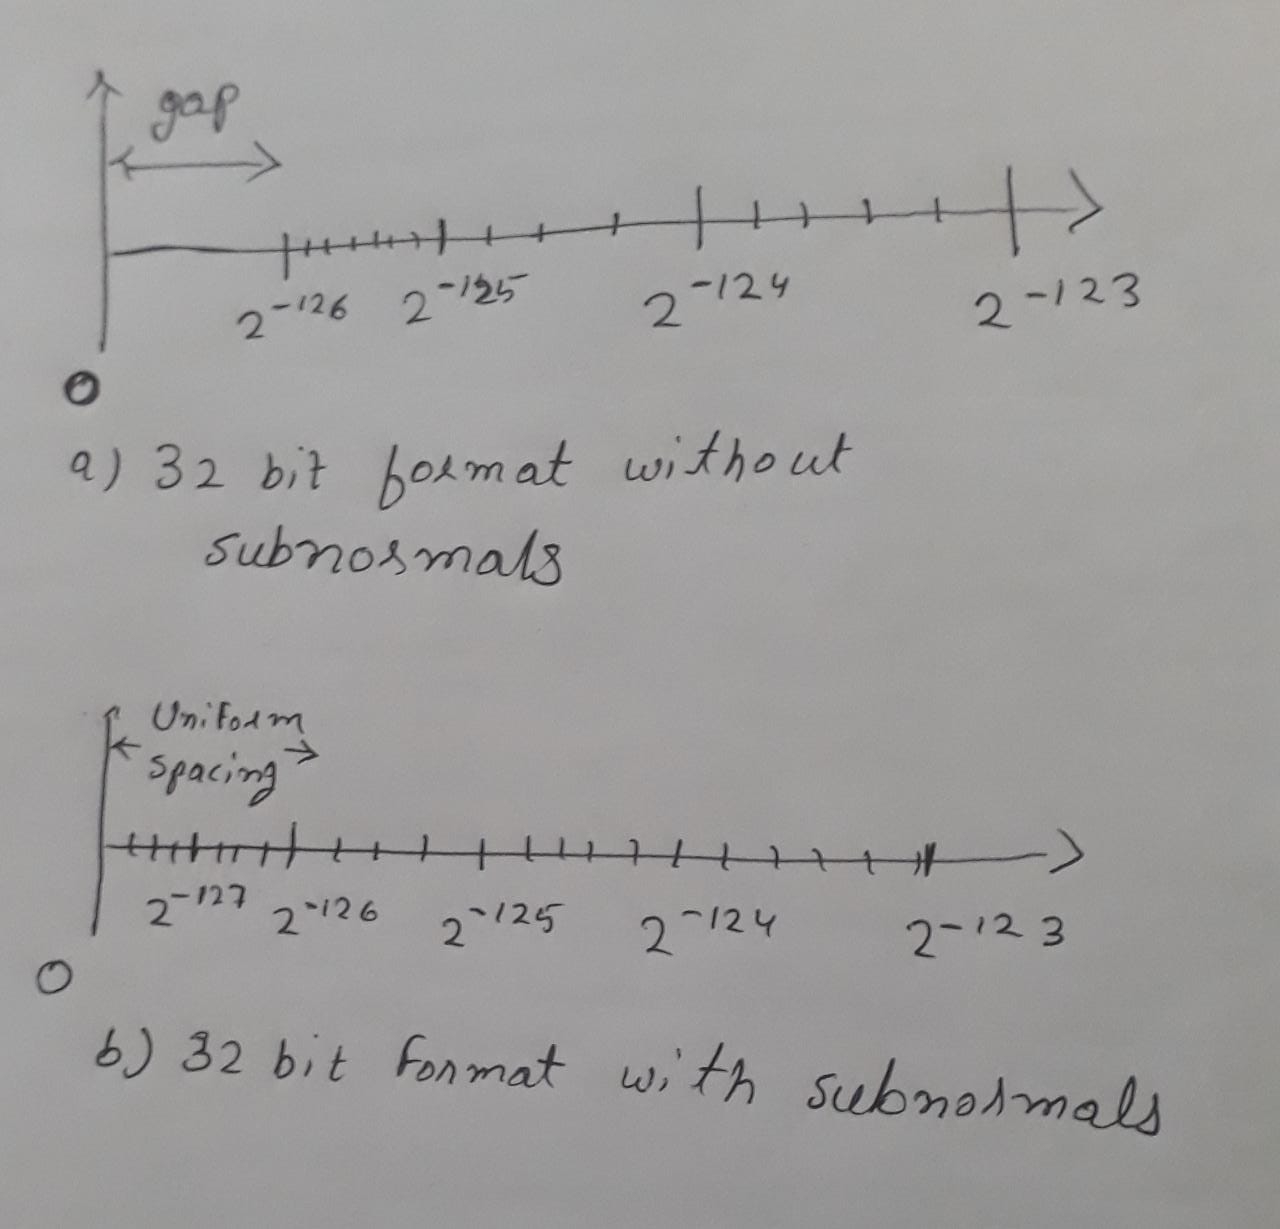 gap
2^-126 2^-125 2^-124 2^-123
0
a) 32 bit format without
subnormals
Uniform
spacing
2^-127 2^-126 2^-125 2^-124 2^-123
0
b) 32 bit format with subnormals